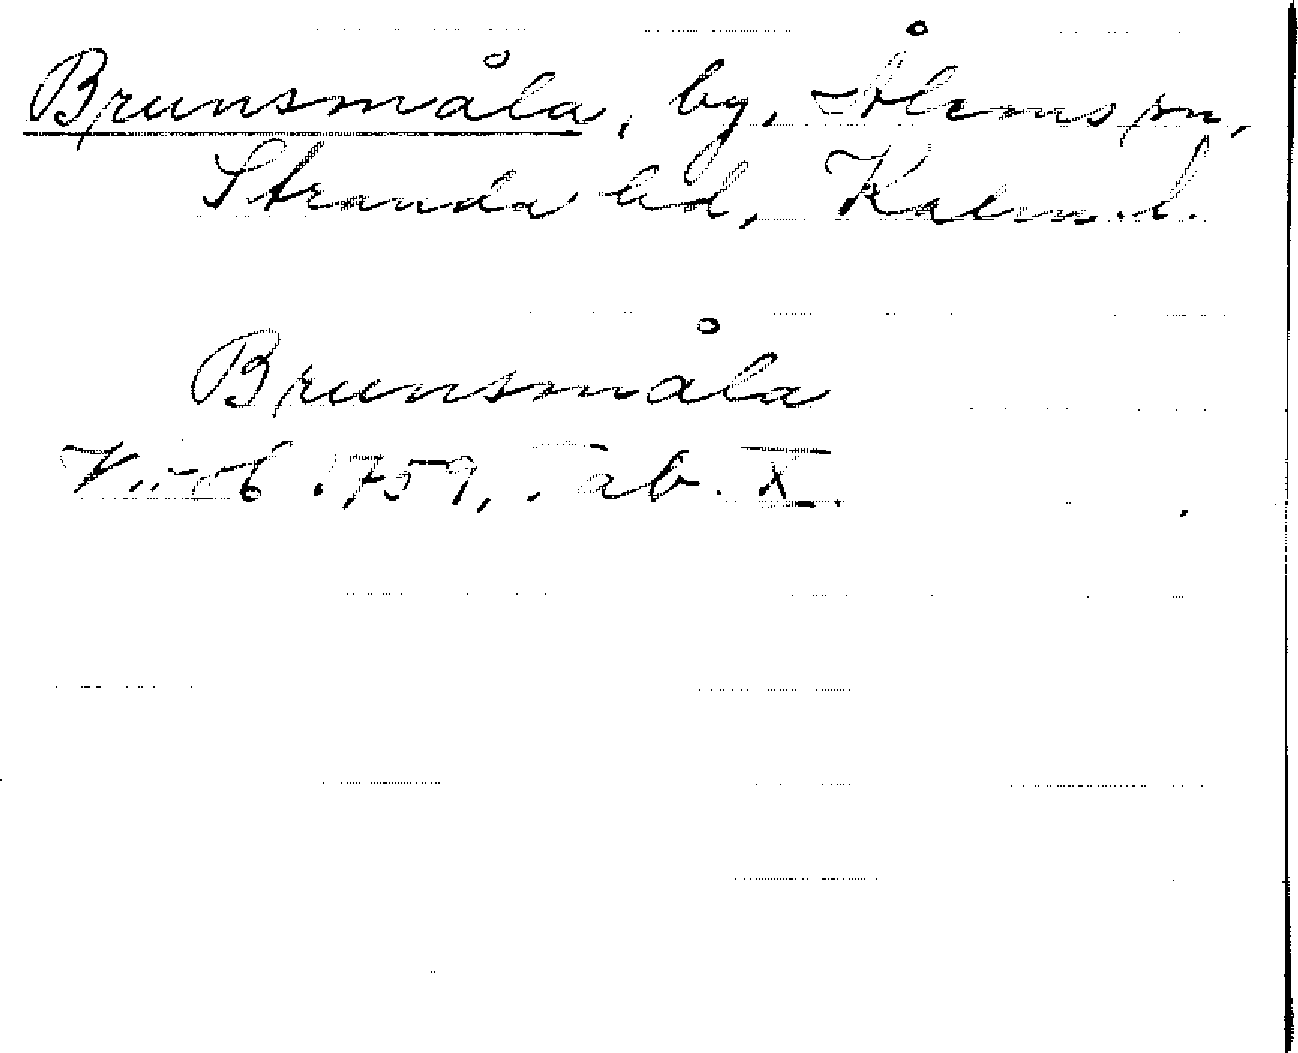 Brunsmåla, by, Ålems sn,
Stranda hd, Kalm. l.
Brunsmåla
1759, Tab. X.